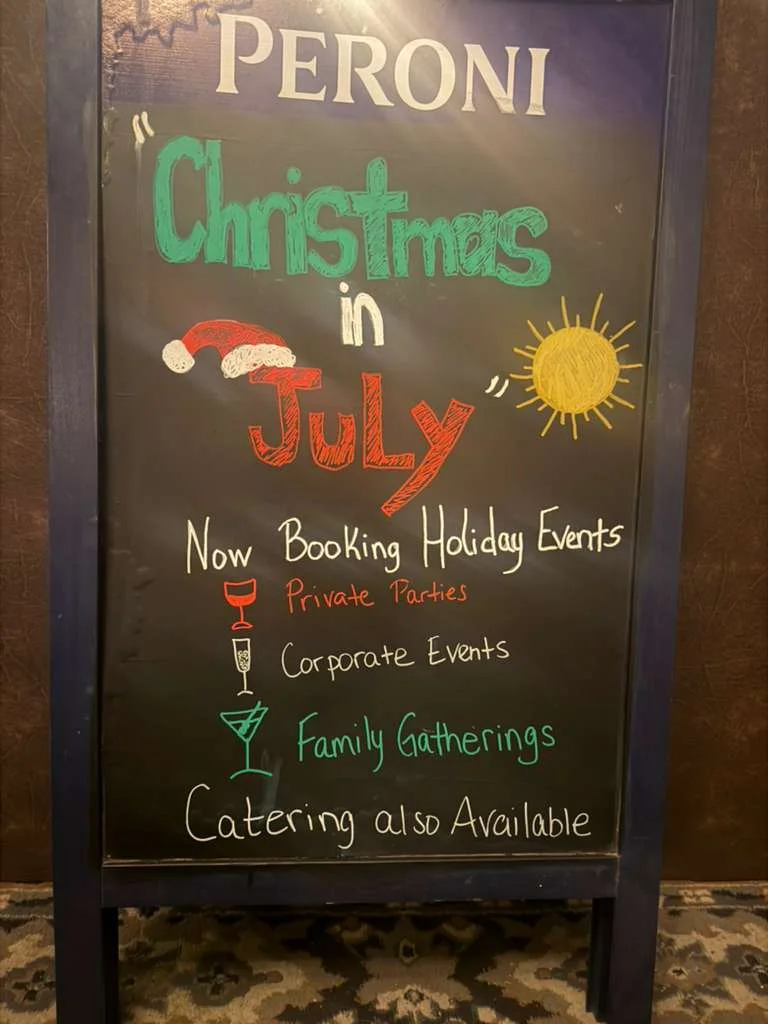 PERONI
"Christmas
in
July"
Now Booking Holiday Events
Private Parties
Corporate Events
Family Gatherings
Catering also Available